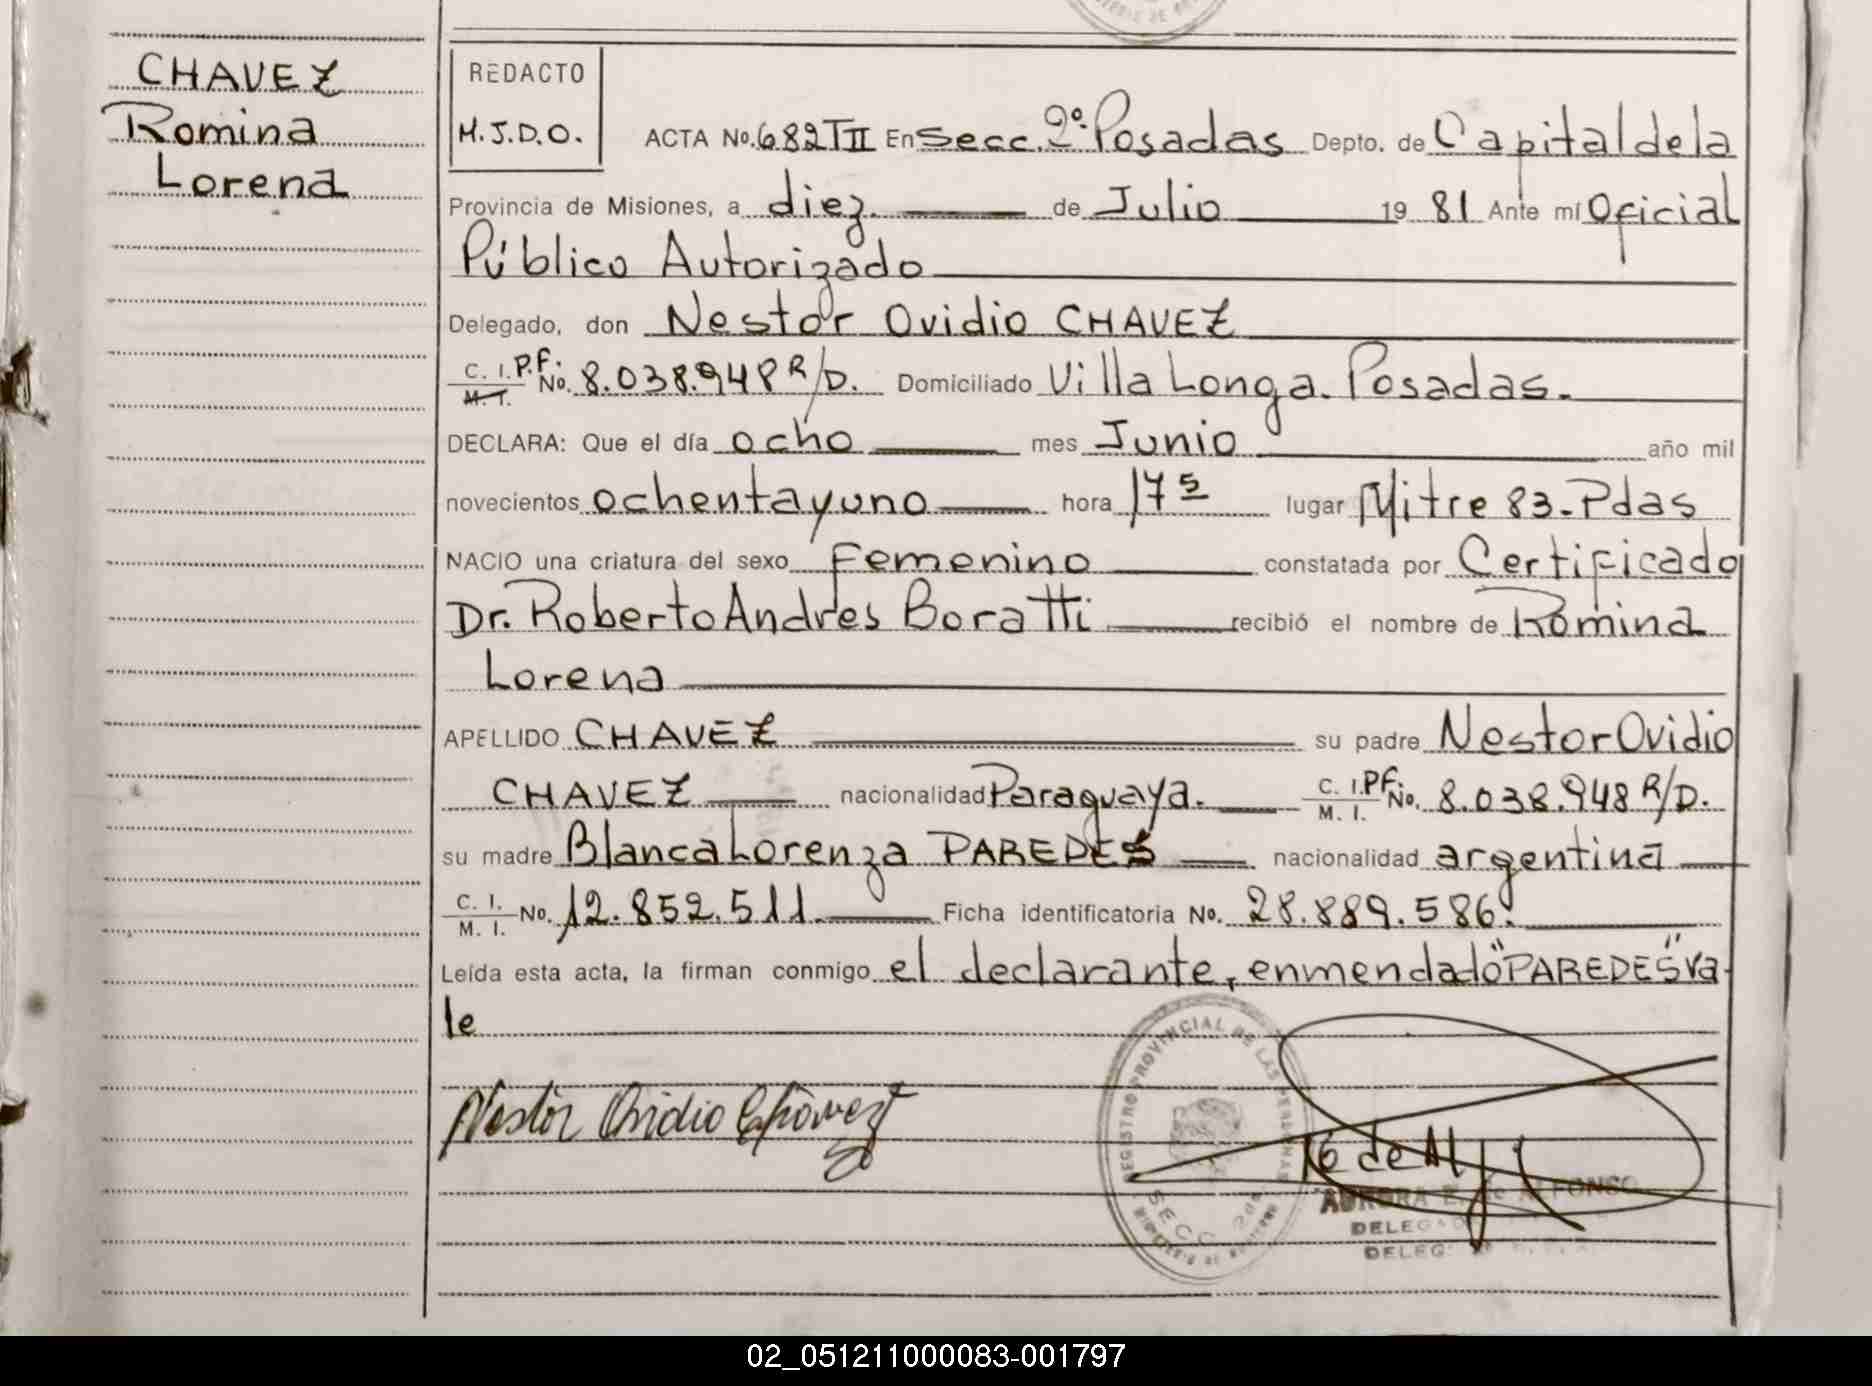 CHAVEZ
Romina
Lorena
REDACTO
M.J.D.O.
ACTA No. 682 TII En Secc. 2º Posadas Depto. de Capital de la
Provincia de Misiones, a diez de Julio 19 81 Ante mí Oficial
Público Autorizado
Delegado, don Nestor Ovidio CHAVEZ
C. I. P.F. M. I. No. 8.038.948 R/D. Domiciliado Villa Longa. Posadas.
DECLARA: Que el día ocho mes Junio año mil
novecientos ochentayuno hora 17 5 lugar Mitre 83. Pdas
NACIO una criatura del sexo Femenino constatada por Certificado
Dr. Roberto Andres Boratti recibió el nombre de Romina
Lorena
APELLIDO CHAVEZ su padre Nestor Ovidio
CHAVEZ nacionalidad Paraguaya. C. I. PF. M. I. No. 8.038.948 R/D.
su madre Blanca Lorenza PAREDES nacionalidad argentina
C. I. M. I. No. 12.852.511 Ficha identificatoria No. 28.889.586.
Leída esta acta, la firman conmigo el declarante, enmendado "PAREDES" va-
le
Nestor Ovidio Chavez
REGISTRO PROVINCIAL DE LAS PERSONAS
SECC. 2da.
MINISTERIO DE GOBIERNO
AURORA E. de ALFONSO
02_051211000083-001797